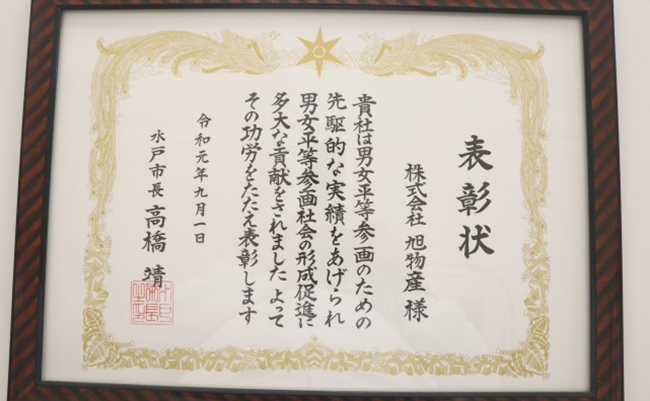 表彰状
株式会社 旭物産 様
貴社は男女平等参画のための
先駆的な実績をあげられ
男女平等参画社会の形成促進に
多大な貢献をされました よって
その功労をたたえ表彰します
令和元年九月一日
水戸市長 高橋 靖